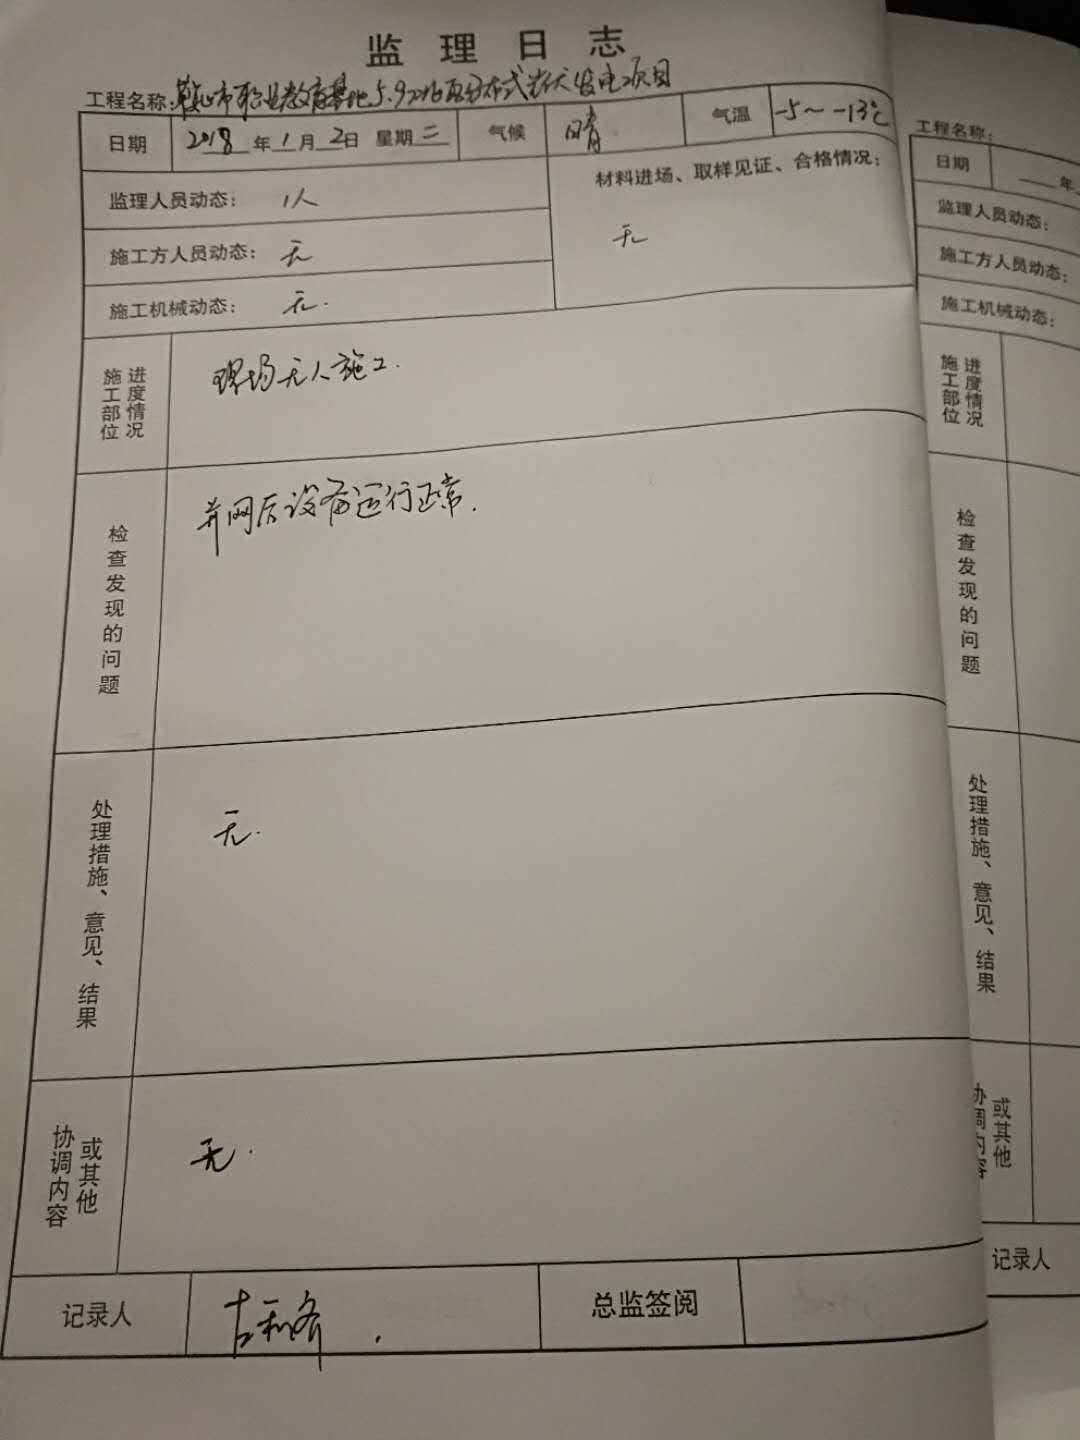 监理日志
工程名称:鞍山市职业教育基地5.92兆瓦分布式光伏发电项目
日期 2018年1月2日 星期二 气候 晴 气温 -5~-13℃
监理人员动态: 1人
材料进场、取样见证、合格情况:
无
施工方人员动态: 无
施工机械动态: 无.
施工部位进度情况 现场无人施工.
检查发现的问题 并网后设备运行正常.
处理措施、意见、结果 无.
协调内容或其他 无.
记录人 总监签阅
工程名称:
日期 年
监理人员动态:
施工方人员动态:
施工机械动态:
施工部位进度情况
检查发现的问题
处理措施、意见、结果
协调内容或其他
记录人